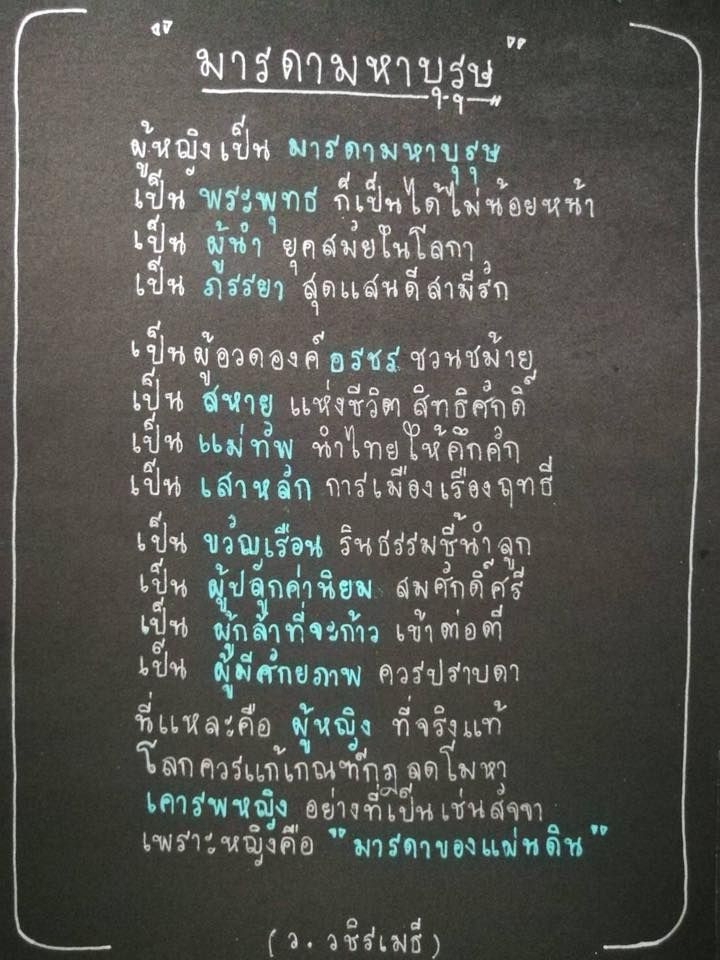 "มารดามหาบุรุษ"
ผู้หญิงเป็น มารดามหาบุรุษ
เป็น พระพุทธ ก็เป็นได้ไม่น้อยหน้า
เป็น ผู้นำ ยุคสมัยในโลกา
เป็น ภรรยา สุดแสนดีสามีรัก
เป็นผู้อวดองค์อรชร ชวนชม้าย
เป็น สหาย แห่งชีวิต สิทธิศักดิ์
เป็น แม่ทัพ นำไทยให้คึกคัก
เป็น เสาหลัก การเมืองเรืองฤทธี
เป็น ขวัญเรือน รินธรรมชี้นำลูก
เป็น ผู้ปลูกค่านิยม สมศักดิ์ศรี
เป็น ผู้กล้าที่จะก้าว เข้าต่อตี
เป็น ผู้มีศักยภาพ ควรปราบดา
นี่แหละคือ ผู้หญิง ที่จริงแท้
โลกควรแก้เกณฑ์กฎลดโมหา
เคารพหญิง อย่างที่เป็นเช่นสัจจา
เพราะหญิงคือ "มารดาของแผ่นดิน"
(ว. วชิรเมธี)